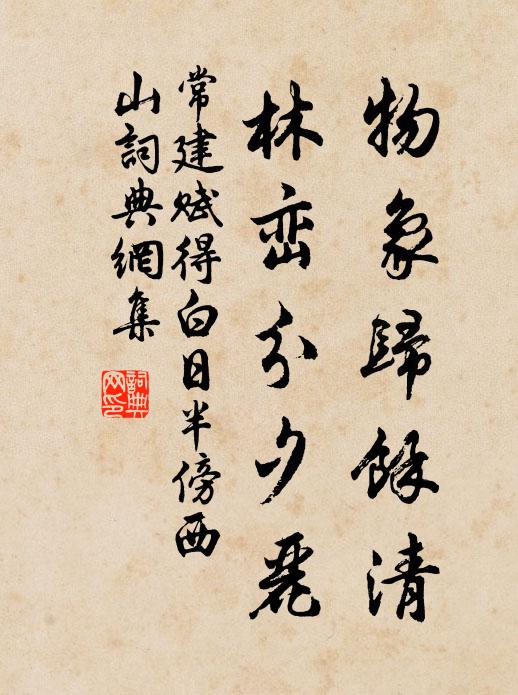 物象歸餘清
林峦分夕麗
常建賦得白日半傍西
山詞典網集
詞典
网印